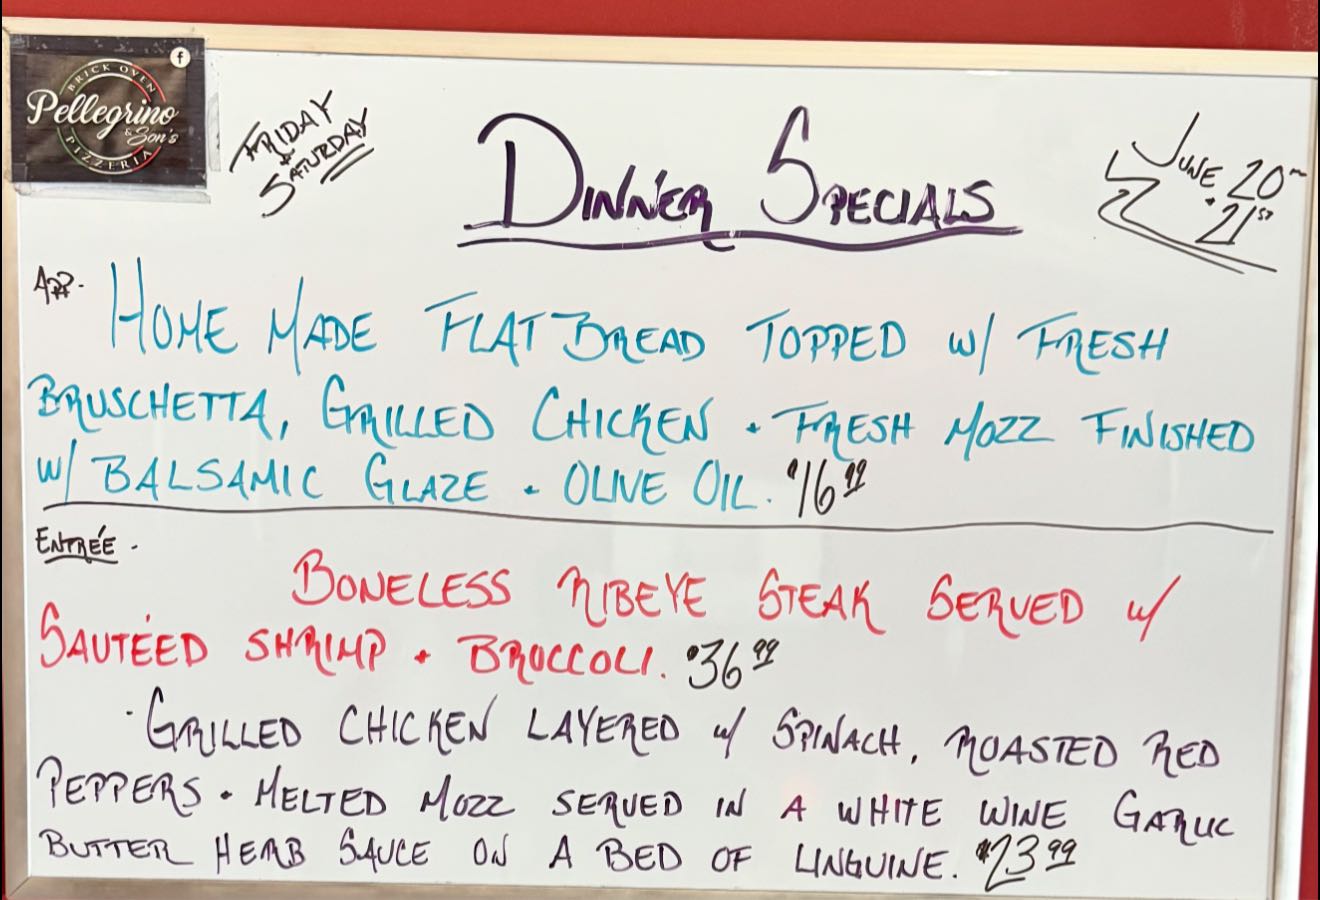 BRICK OVEN
Pellegrino
& Son's
PIZZERIA
f
FRIDAY
+
SATURDAY
DINNER SPECIALS
JUNE 20TH
+ 21ST
APP.
HOME MADE FLAT BREAD TOPPED w/ FRESH
BRUSCHETTA, GRILLED CHICKEN + FRESH MOZZ FINISHED
w/ BALSAMIC GLAZE + OLIVE OIL. $16.99
ENTRÉE.
BONELESS RIBEYE STEAK SERVED w/
SAUTÉED SHRIMP + BROCCOLI. $36.99
· GRILLED CHICKEN LAYERED w/ SPINACH, ROASTED RED
PEPPERS + MELTED MOZZ SERVED IN A WHITE WINE GARLIC
BUTTER HERB SAUCE ON A BED OF LINGUINE. $23.99